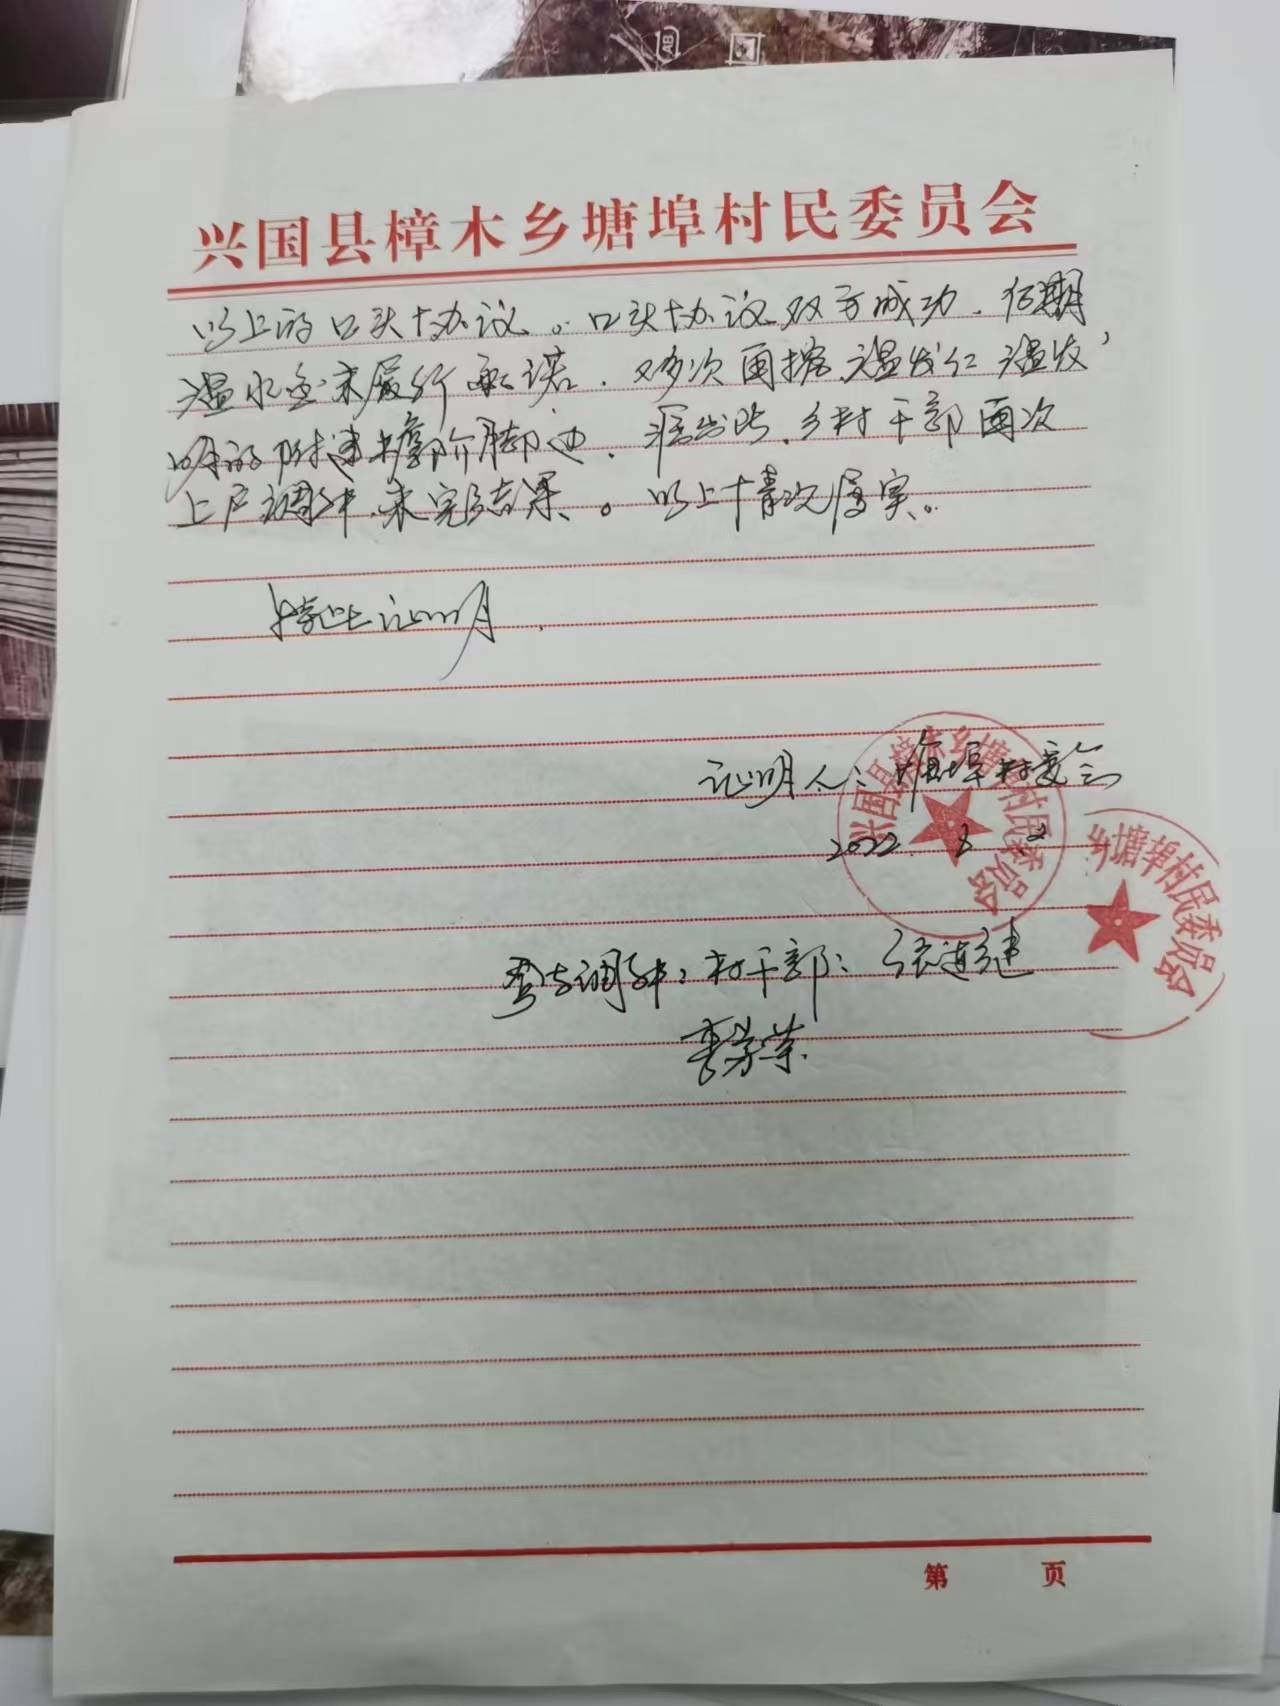 兴国县樟木乡塘埠村民委员会
以上的口头协议。口头协议双方成功.
温水金未履行承诺.多次 温发仁 温发
明的 脚边. 乡村干部 次
上户调解.未 结果。以上情况属实。
特此证明.
证明人:塘埠村委会
兴国县樟木乡塘埠村民委员会
2022. 8 2
乡塘埠村民委员会
参与调解:村干部:张
李芳荣.
第 页